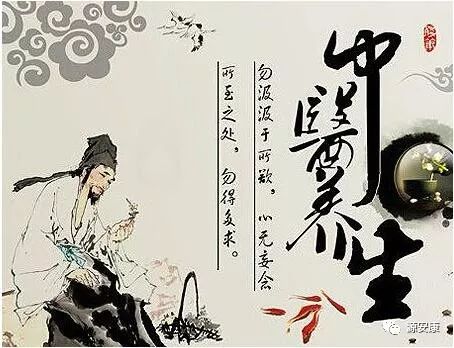 中醫养生
勿汲汲于所欲，心无妄念
所至之处，勿得多求。
源安康